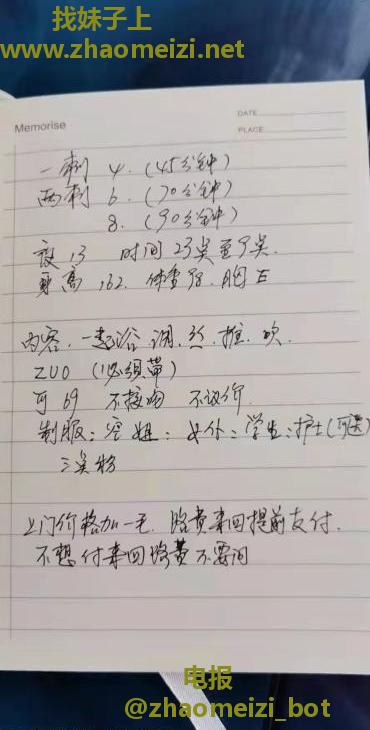 找妹子上
www.zhaomeizi.net
Memorise
DATE
PLACE
一刺 4. (45分钟)
两刺 6. (70分钟)
8. (90分钟)
夜 13 时间 23点至9点.
身高 162. 体重98. 胸E
内容. 一起浴 调. 丝. 推. 吹.
ZUO (必须带)
可69 不接吻 不议价
制服: 空姐: 女仆: 学生: 护士(可选)
上门价格加一毛. 路费来回提前支付.
不想付来回路费不要问
电报
@zhaomeizi_bot